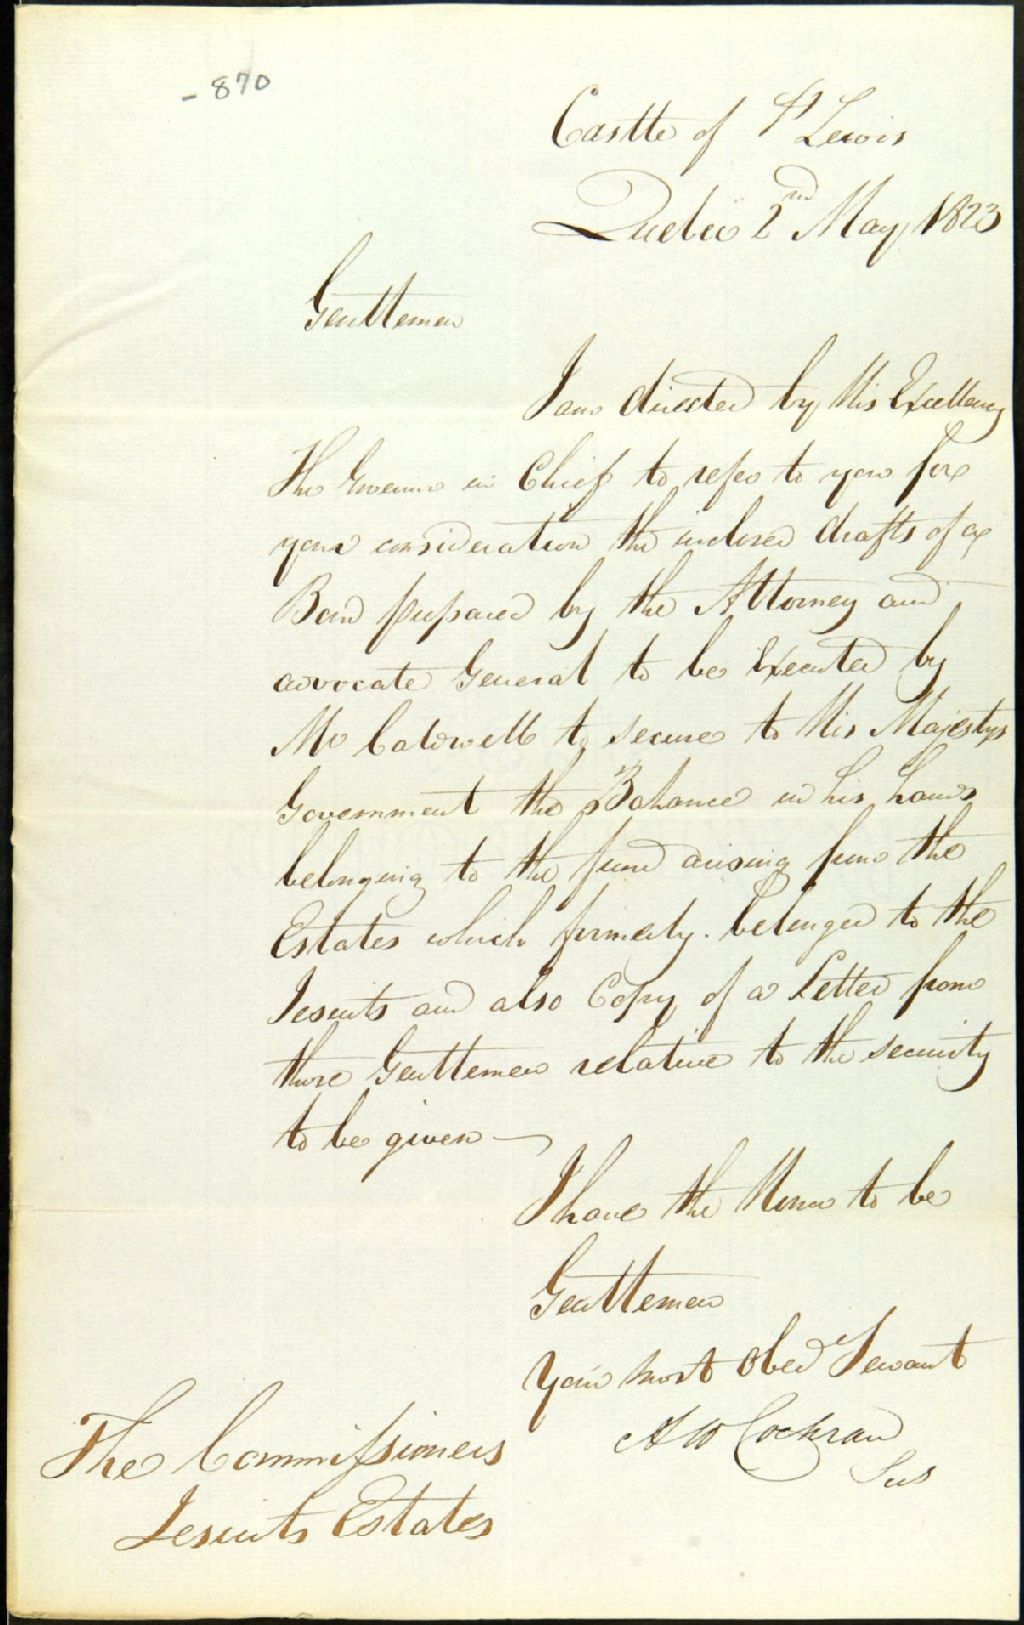 - 870
Castle of St Lewis
Quebec 2nd May 1823
Gentlemen
I am directed by His Excellency
The Governor in Chief to refer to you for
your consideration the inclosed drafts of a
Bond prepared by the Attorney and
advocate General to be Executed by
Mr Caldwell to secure to His Majestys
Government the Balance in his hands
belonging to the fund arising from the
Estates which formerly belonged to the
Jesuits and also Copy of a Letter from
those Gentlemen relative to the security
to be given —
I have the Honor to be
Gentlemen
Your most Obed Servant
A W Cochran
The Commissioners
Jesuits Estates